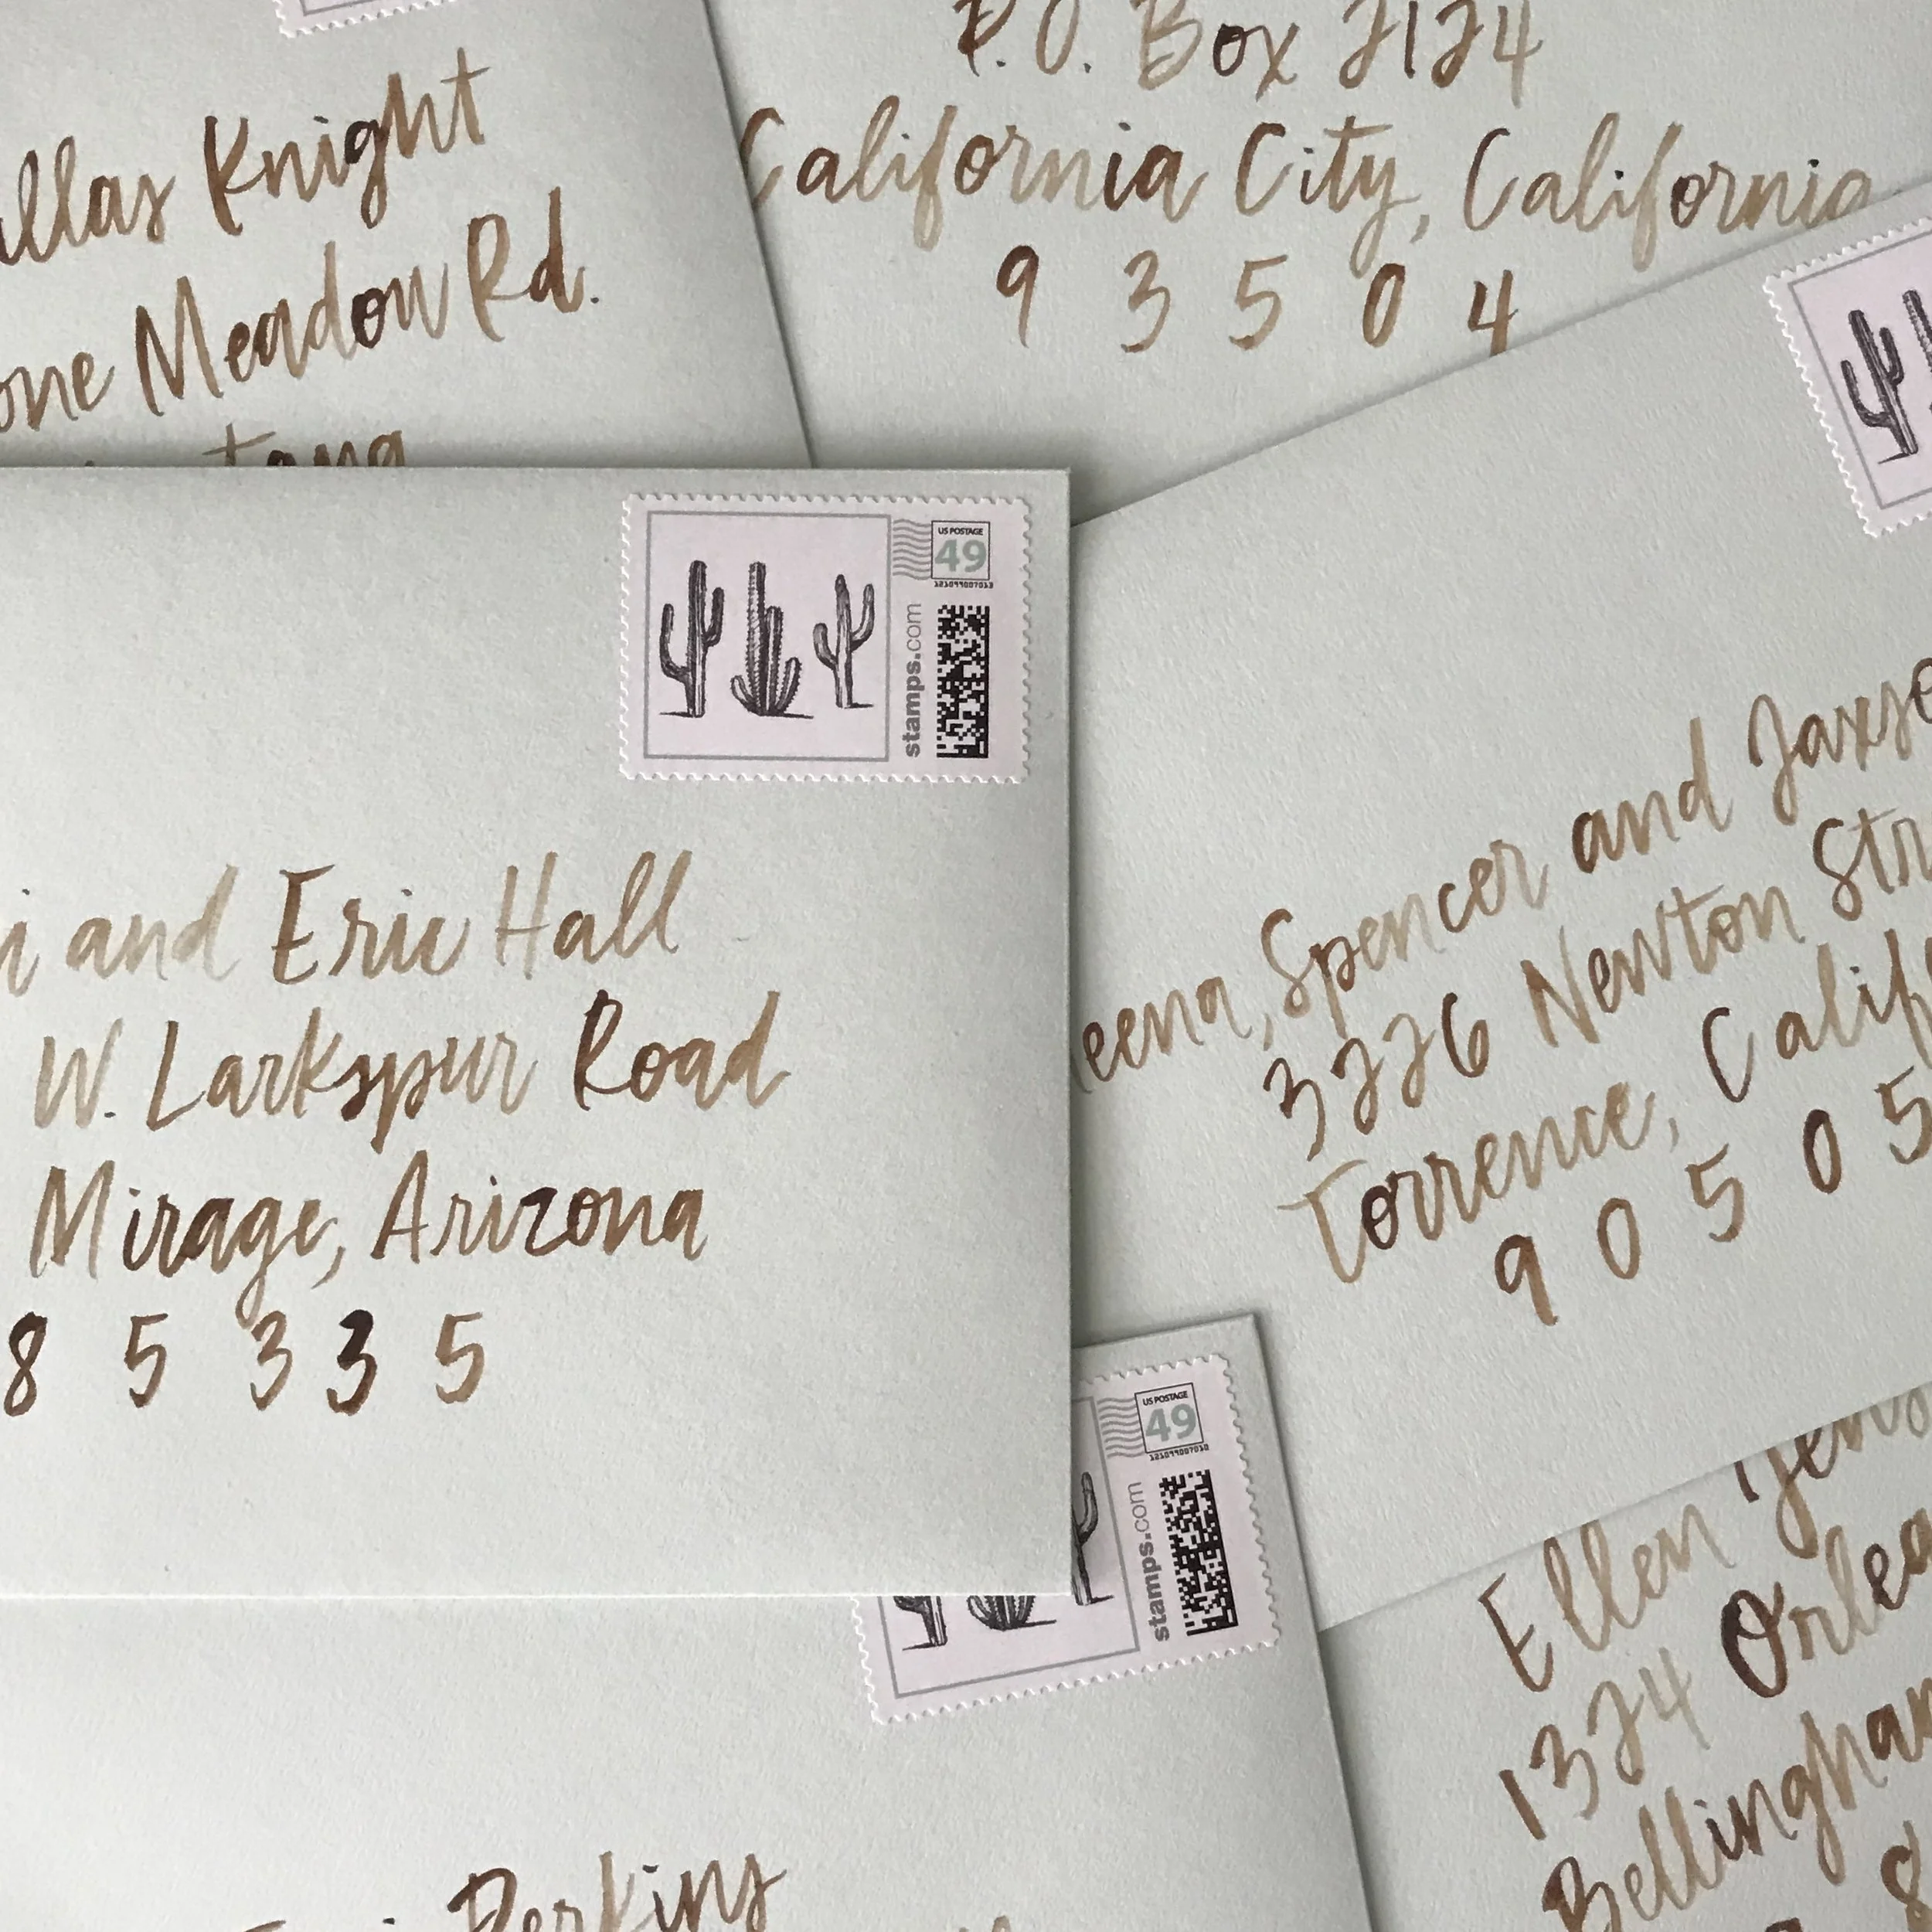 Knight
Meadow Rd.
P.O. Box 2124
California City, California
9 3 5 0 4
US POSTAGE
49
stamps.com
and Eric Hall
W. Larkspur Road
Mirage, Arizona
8 5 3 3 5
Spencer and
3226 Newton
Torrence,
9 0 5 0 5
US POSTAGE
49
stamps.com
Ellen
1324
Perkins